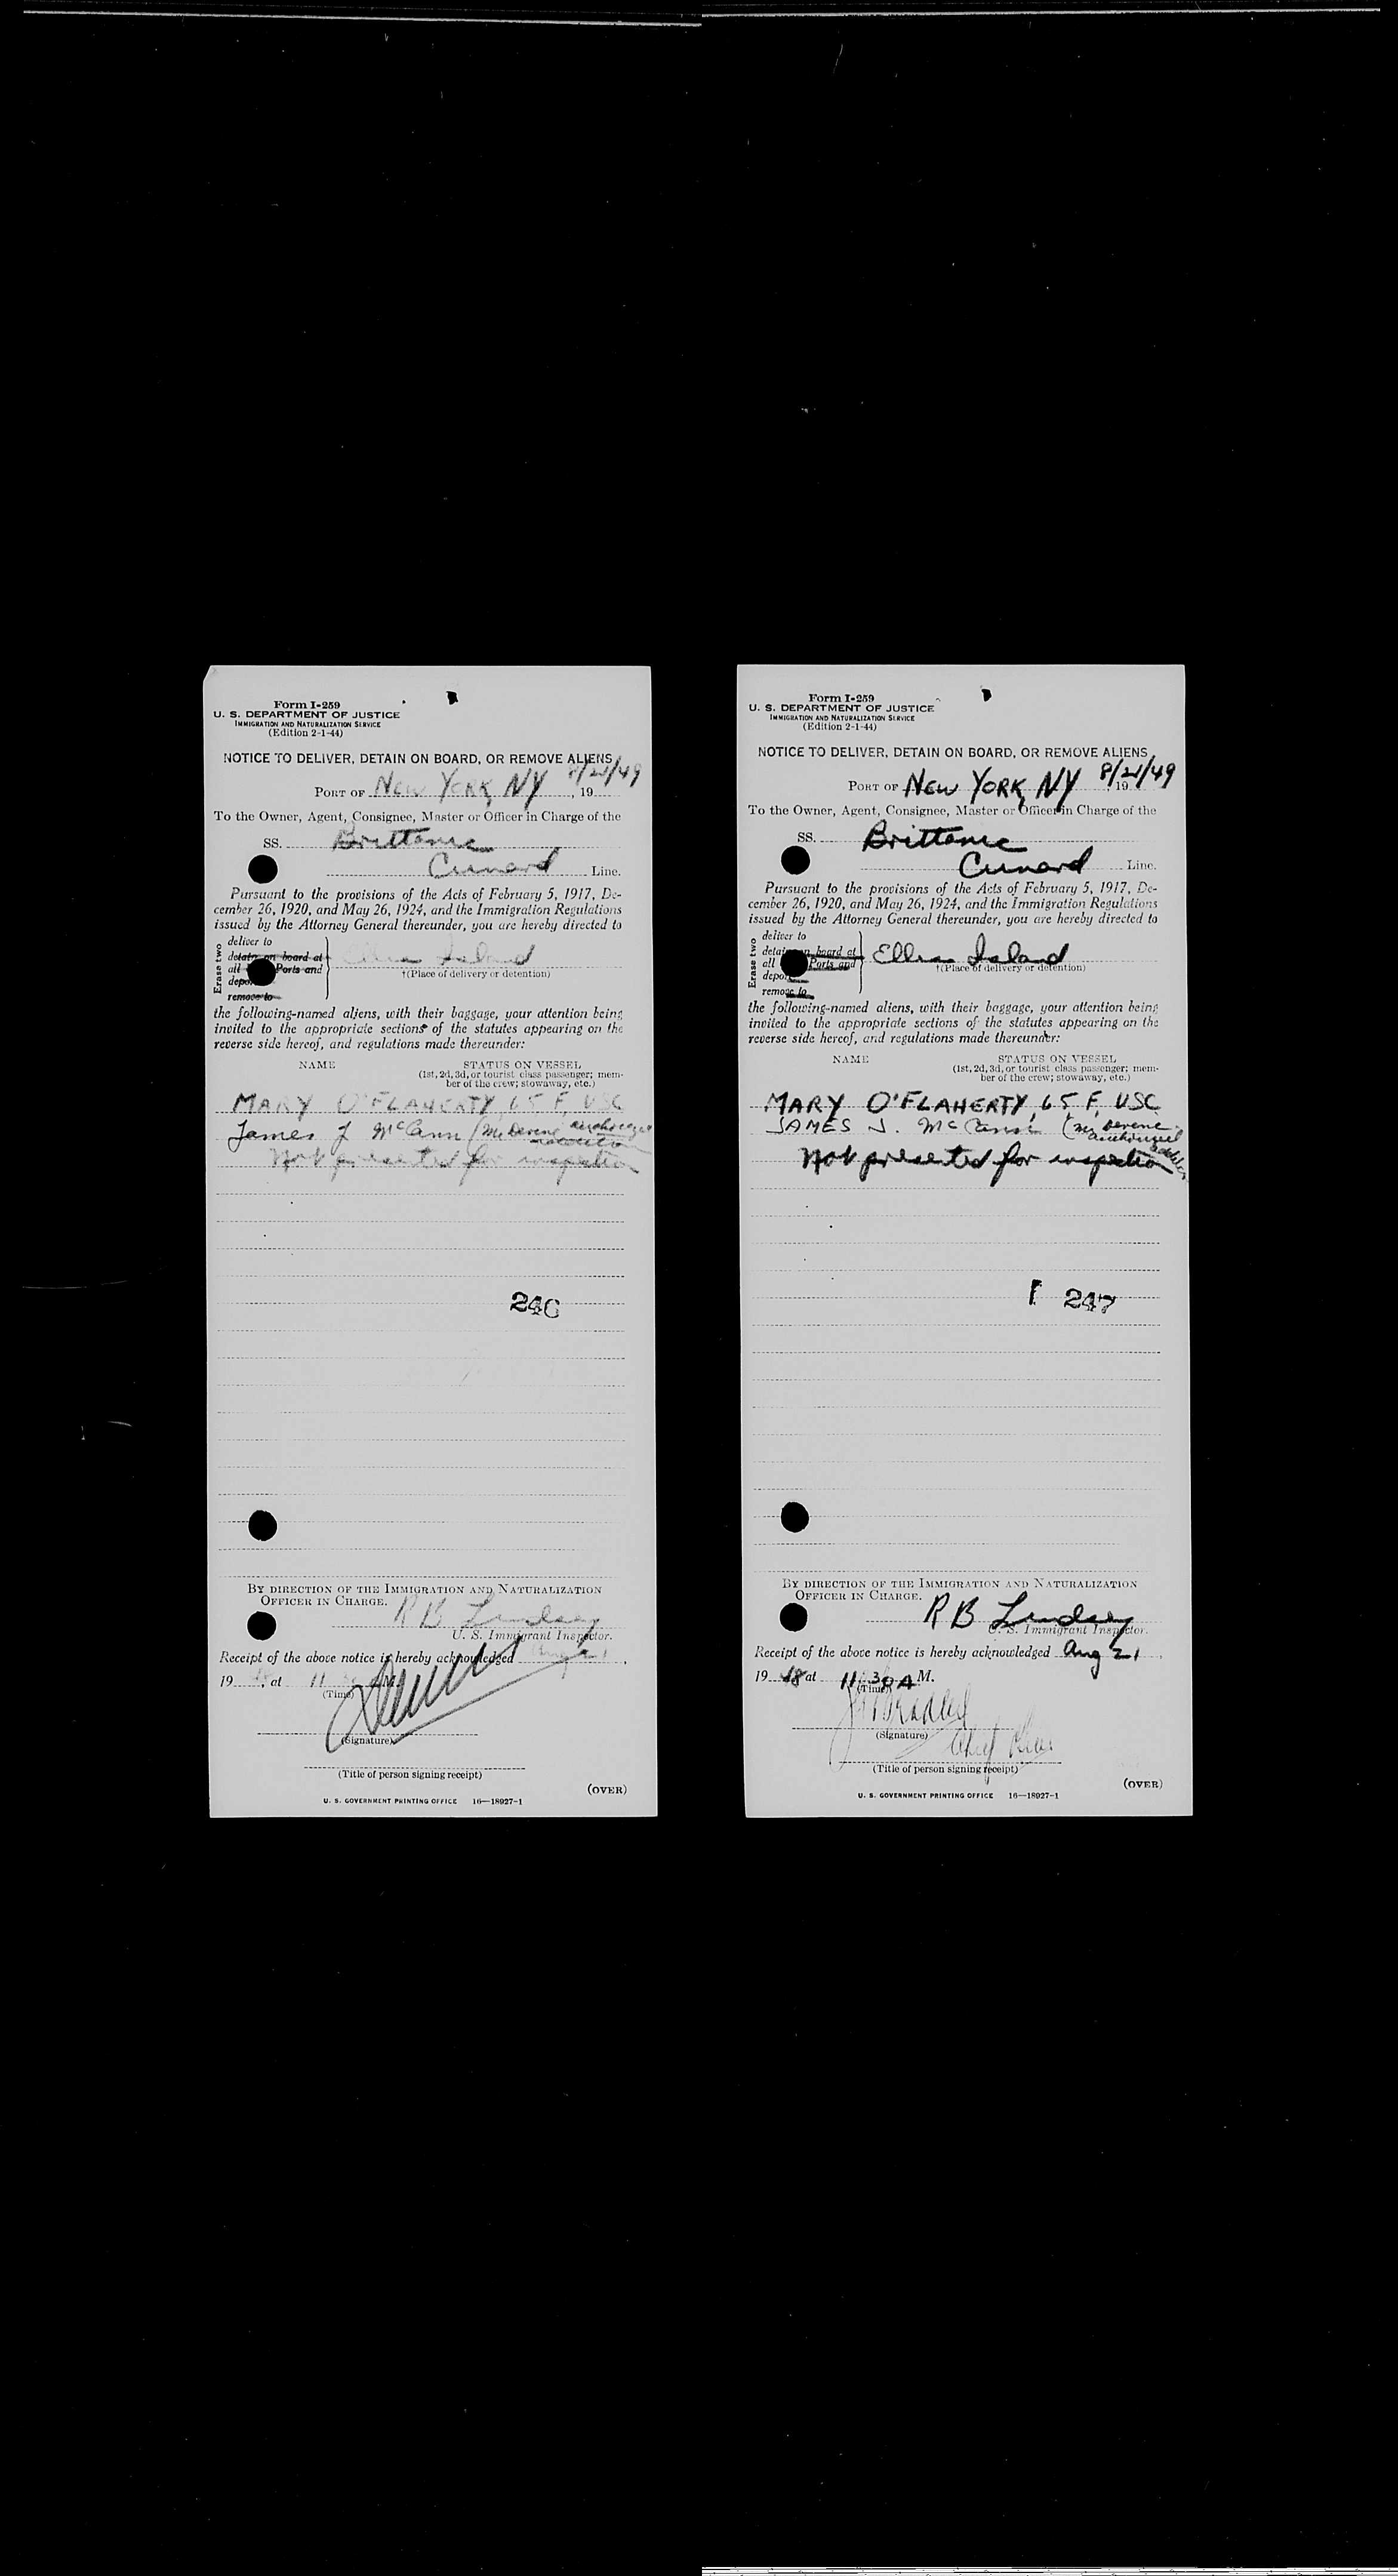 Form I-259
U. S. DEPARTMENT OF JUSTICE
IMMIGRATION AND NATURALIZATION SERVICE
(Edition 2-1-44)
NOTICE TO DELIVER, DETAIN ON BOARD, OR REMOVE ALIENS
8/21/49
PORT OF NEW YORK, NY , 19
To the Owner, Agent, Consignee, Master or Officer in Charge of the
SS. Brittanic
Cunard Line.
Pursuant to the provisions of the Acts of February 5, 1917, De-
cember 26, 1920, and May 26, 1924, and the Immigration Regulations
issued by the Attorney General thereunder, you are hereby directed to
Erase two
deliver to
detain on board at
all Ports and
depor
remove to
Ellis Island
†(Place of delivery or detention)
the following-named aliens, with their baggage, your attention being
invited to the appropriate sections of the statutes appearing on the
reverse side hereof, and regulations made thereunder:
NAME STATUS ON VESSEL
(1st, 2d, 3d, or tourist class passenger; mem-
ber of the crew; stowaway, etc.)
MARY O'FLAHERTY, 65 F, USC
James J McCann (Mr Devene authorized
Not presented for inspection
246
BY DIRECTION OF THE IMMIGRATION AND NATURALIZATION
OFFICER IN CHARGE.
R B Lindsey
U. S. Immigrant Inspector.
Receipt of the above notice is hereby acknowledged Aug 21,
19 , at 11 M.
(Time)
(Signature)
(Title of person signing receipt)
(OVER)
U. S. GOVERNMENT PRINTING OFFICE 16—18927-1
Form I-259
U. S. DEPARTMENT OF JUSTICE
IMMIGRATION AND NATURALIZATION SERVICE
(Edition 2-1-44)
NOTICE TO DELIVER, DETAIN ON BOARD, OR REMOVE ALIENS
8/21/49
PORT OF NEW YORK, NY , 19
To the Owner, Agent, Consignee, Master or Officer in Charge of the
SS. Brittanic
Cunard Line.
Pursuant to the provisions of the Acts of February 5, 1917, De-
cember 26, 1920, and May 26, 1924, and the Immigration Regulations
issued by the Attorney General thereunder, you are hereby directed to
Erase two
deliver to
detain on board at
all Ports and
depor
remove to
Ellis Island
†(Place of delivery or detention)
the following-named aliens, with their baggage, your attention being
invited to the appropriate sections of the statutes appearing on the
reverse side hereof, and regulations made thereunder:
NAME STATUS ON VESSEL
(1st, 2d, 3d, or tourist class passenger; mem-
ber of the crew; stowaway, etc.)
MARY O'FLAHERTY, 65 F, USC
JAMES J. McCann (Mr Devene
authorized
Not presented for inspection
247
BY DIRECTION OF THE IMMIGRATION AND NATURALIZATION
OFFICER IN CHARGE.
R B Lindsey
U. S. Immigrant Inspector.
Receipt of the above notice is hereby acknowledged Aug 21,
19 48 at 11:30 A M.
(Time)
(Signature)
(Title of person signing receipt)
(OVER)
U. S. GOVERNMENT PRINTING OFFICE 16—18927-1